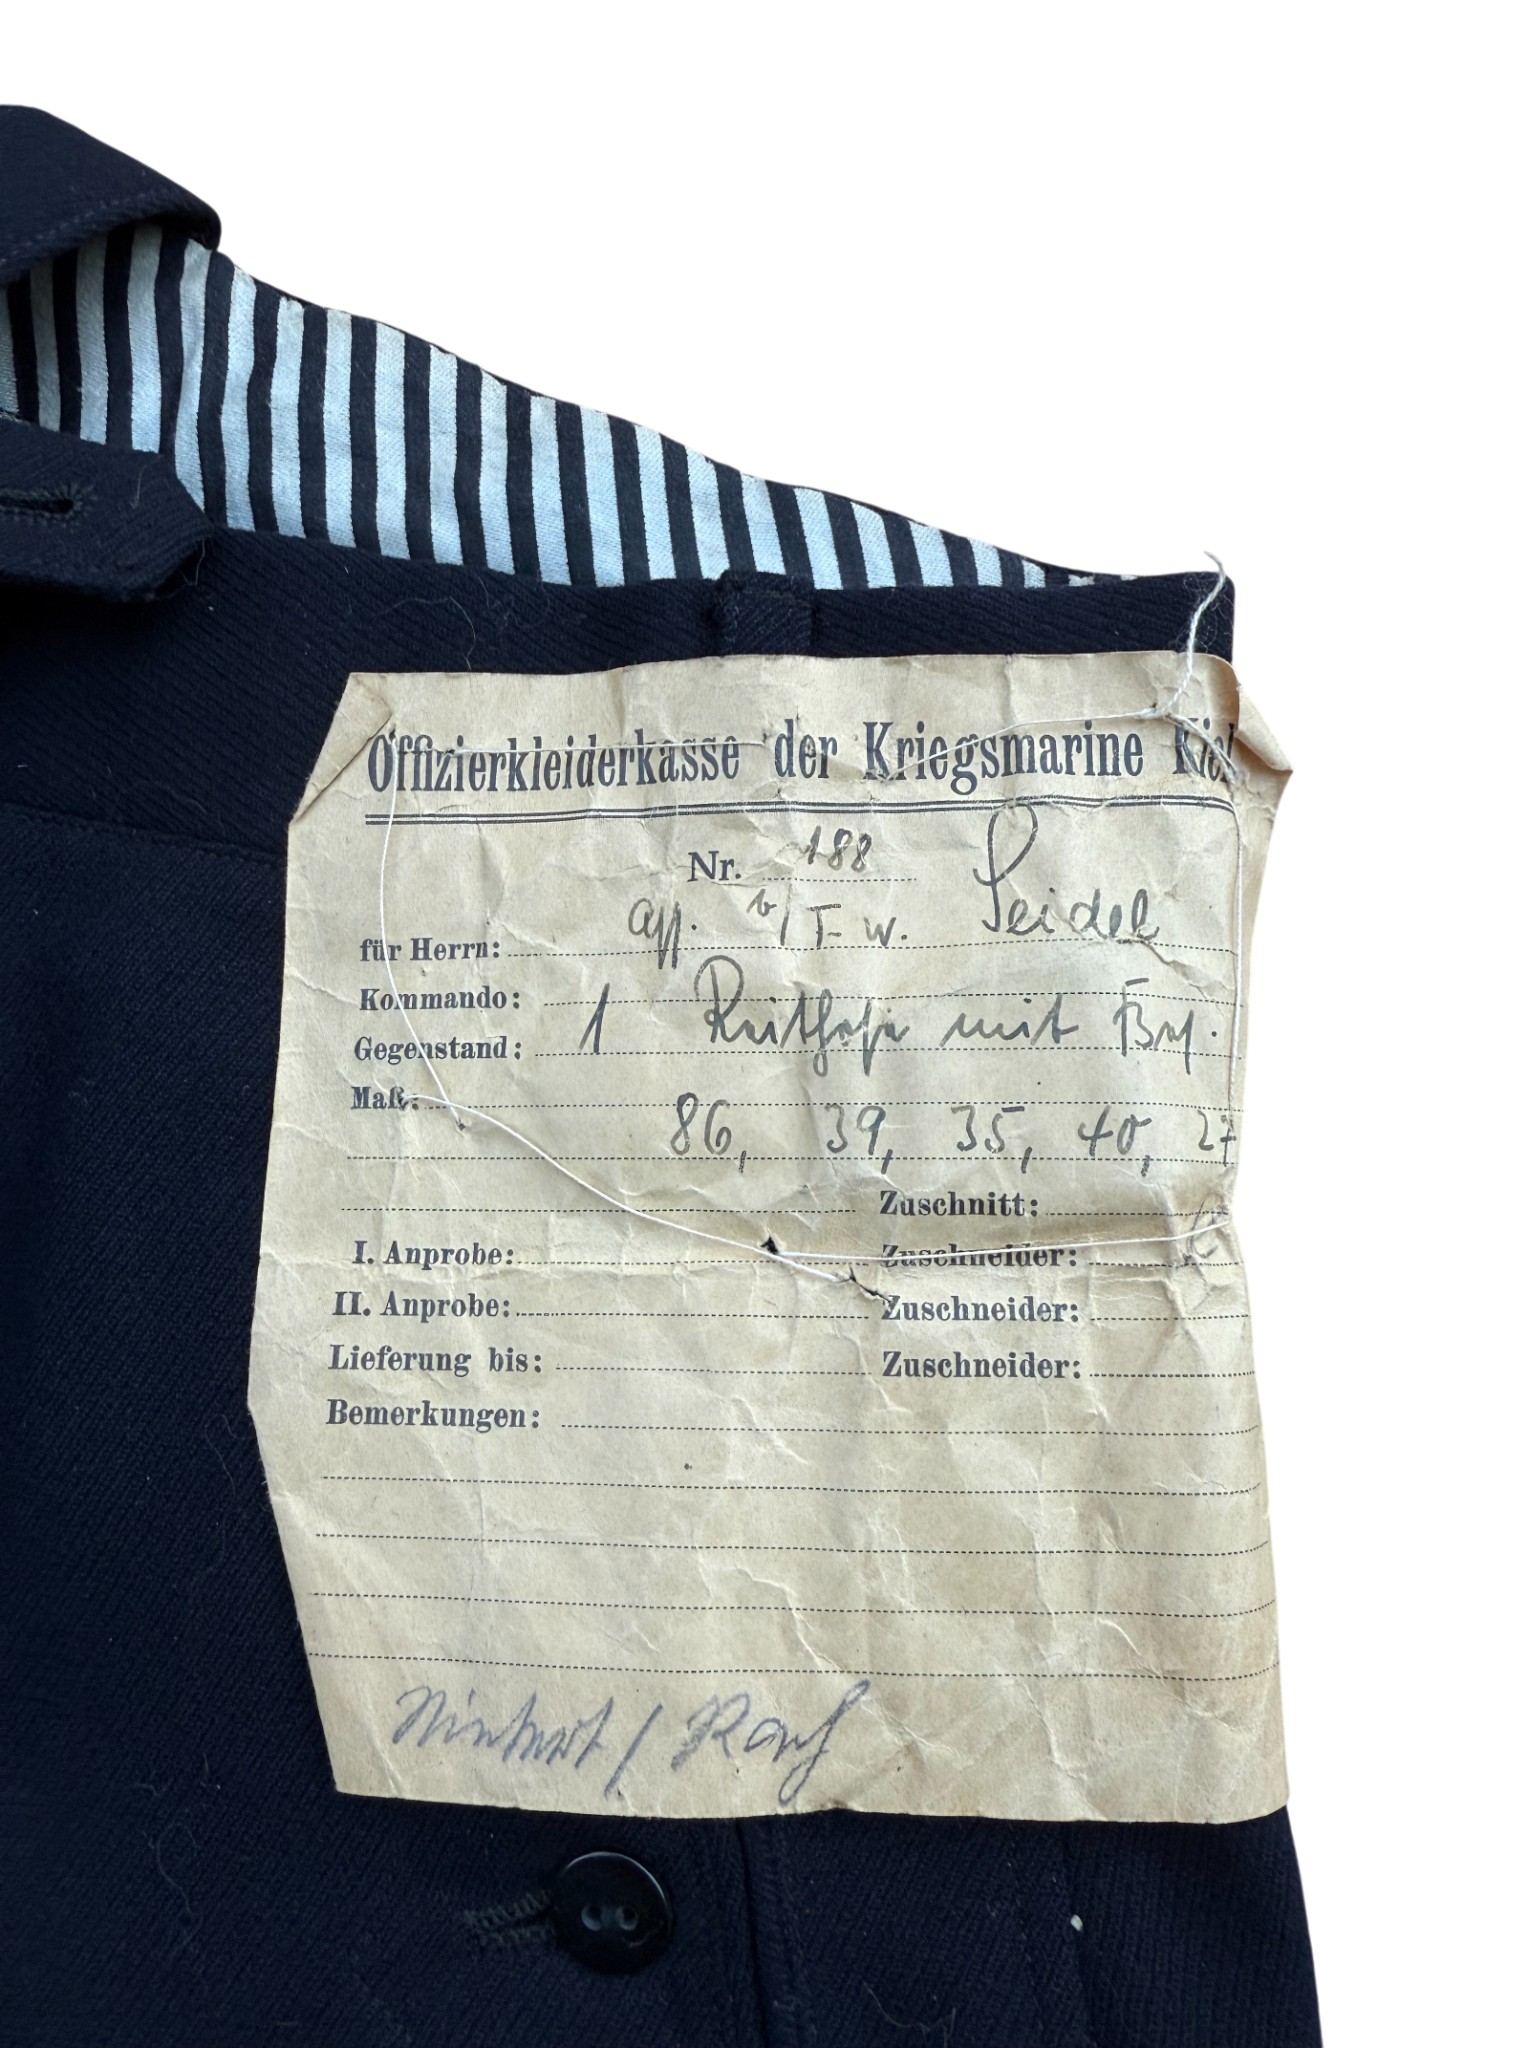 Offizierkleiderkasse der Kriegsmarine Kiel
Nr. 188
für Herrn: Seidel
Kommando:
Gegenstand: 1 Reithose mit
Maß:
86, 39, 35, 40, 27
Zuschnitt:
I. Anprobe: Zuschneider:
II. Anprobe: Zuschneider:
Lieferung bis: Zuschneider:
Bemerkungen: